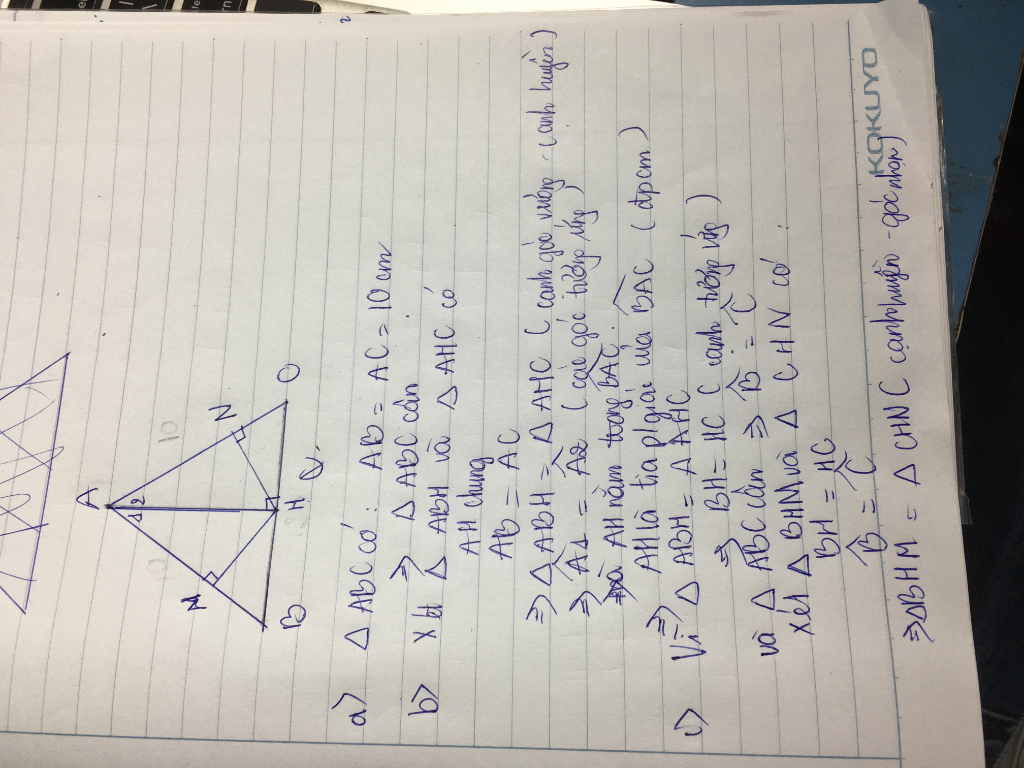 A
1 2
10
M
N
B
H
C
a) Δ ABC có : AB = AC = 10 cm
⇒ Δ ABC cân
b) Xét Δ ABH và Δ AHC có
AH chung
AB = AC
⇒ Δ ABH = Δ AHC ( cạnh góc vuông - cạnh huyền )
⇒ Â1 = Â2 ( các góc tương ứng )
AH nằm trong BAC
⇒ AH là tia p/giác của BAC ( đpcm )
c) Vì Δ ABH = Δ AHC
⇒ BH = HC ( cạnh tương ứng )
và Δ ABC cân ⇒ B̂ = Ĉ
xét Δ BHM và Δ CHN có :
BH = HC
B̂ = Ĉ
⇒ ΔBHM = Δ CHN ( cạnh huyền - góc nhọn )
KOKUYO